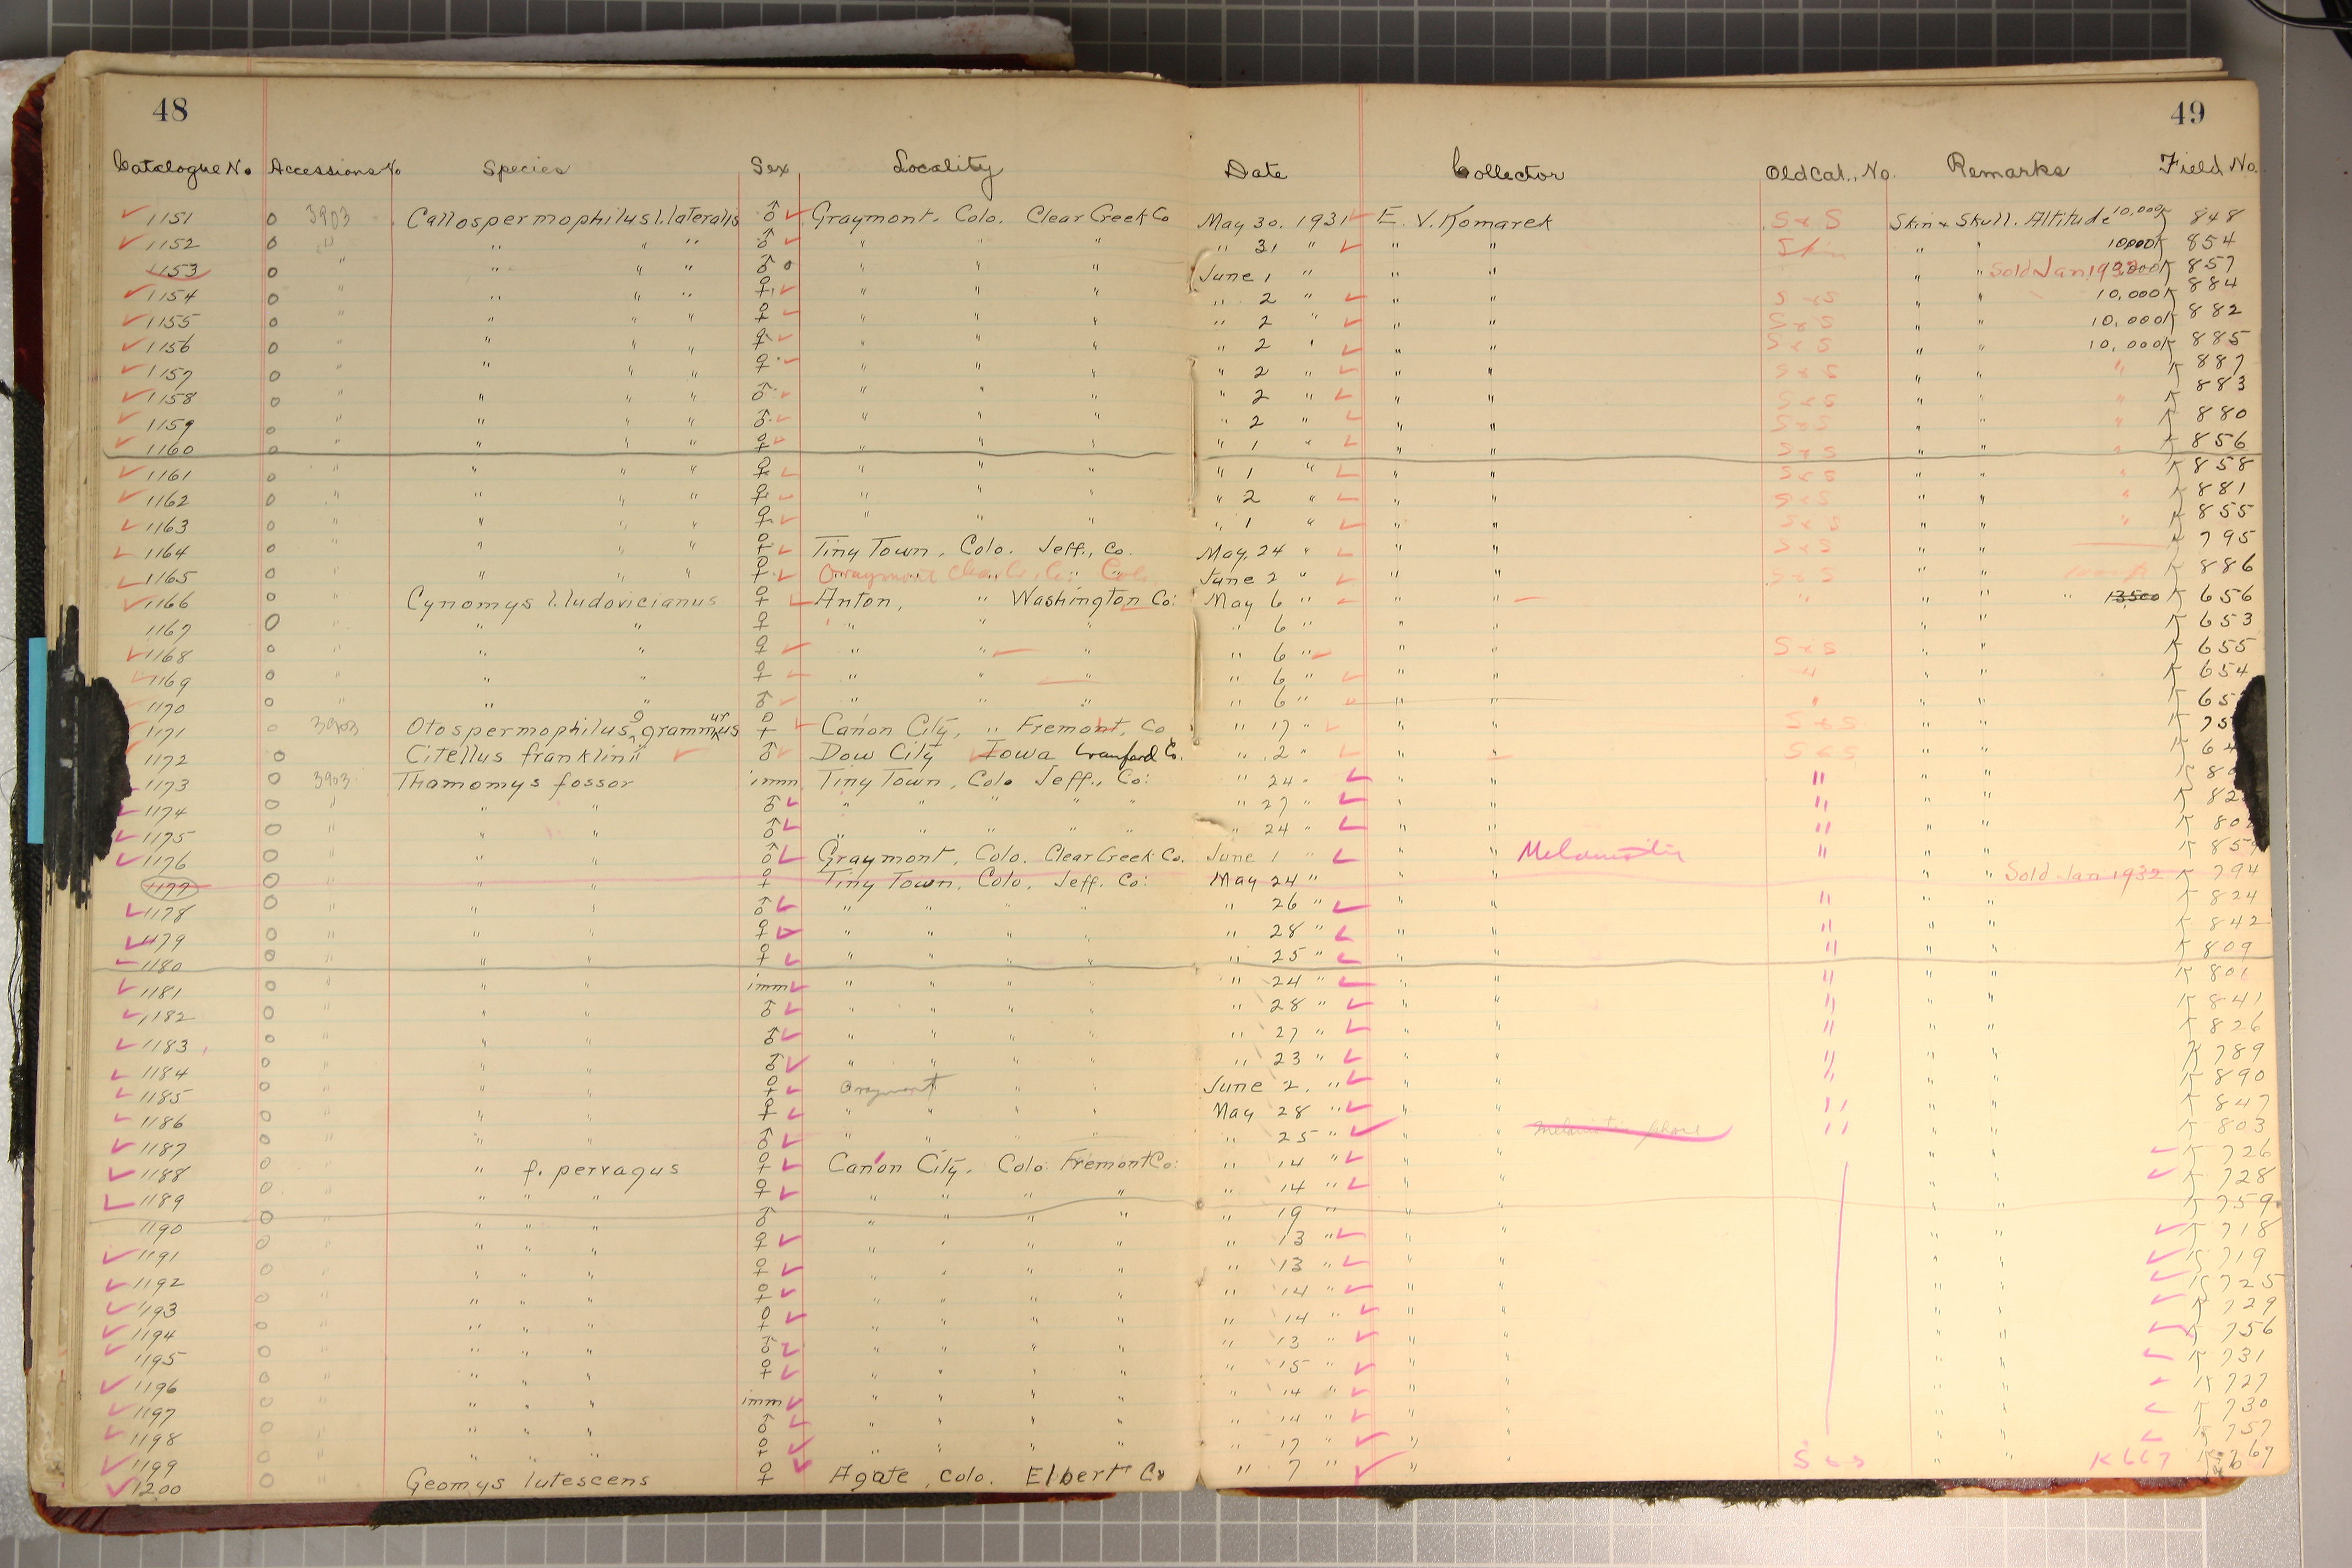 48 49
Catalogue No. Accessions No Species Sex Locality Date Collector Old Cat. No. Remarks Field No.
1151 o 3903 Callospermophilus l. lateralis ♂ Graymont, Colo. Clear Creek Co May 30. 1931 E. V. Komarek S & S Skin & Skull. Altitude 10,000 K 848
1152 o " " " " ♂ " " " " 31 " " " Skin " " 10000 K 854
1153 o " " " " ♂ o " " " June 1 " " " " " Sold Jan 1932 K 857
1154 o " " " " ♀ " " " " 2 " " " S & S " " 10,000 K 884
1155 o " " " " ♀ " " " " 2 " " " S & S " " 10,000 K 882
1156 o " " " " ♀ " " " " 2 " " " S & S " " 10,000 K 885
1157 o " " " " ♀ " " " " 2 " " " S & S " " " K 887
1158 o " " " " ♂ " " " " 2 " " " S & S " " " K 883
1159 o " " " " ♂ " " " " 2 " " " S & S " " " K 880
1160 o " " " " ♀ " " " " 1 " " " S & S " " " K 856
1161 o " " " " ♀ " " " " 1 " " " S & S " " " K 858
1162 o " " " " ♀ " " " " 2 " " " S & S " " " K 881
1163 o " " " " ♀ " " " " 1 " " " S & S " " " K 855
1164 o " " " " ♀ Tiny Town, Colo. Jeff., Co. May, 24 " " " S & S " " K 795
1165 o " " " " ♀ Graymont June 2 " " " S & S " " K 886
1166 o " Cynomys l. ludovicianus ♀ Anton, " Washington Co: May 6 " " " " " " " 13,500 K 656
1167 o " " " ♀ " " " " 6 " " " " " K 653
1168 o " " " ♀ " " " " 6 " " " S & S " " K 655
1169 o " " " ♀ " " " " 6 " " " " " " K 654
1170 o " " " ♂ " " " " 6 " " " " " " K 65
1171 o 3903 Otospermophilus g grammurus ♀ Cañon City, " Fremont, Co " 17 " " " S & S " " K 75
1172 o Citellus franklinii ♂ Dow City Iowa Crawford Co. " 2 " " " S & S " " K 64
1173 o 3903 Thamomys fossor imm Tiny Town, Colo Jeff., Co: " 24 " " " " " " K 80
1174 o " " " ♂ " " " " " " 27 " " " " " " K 82
1175 o " " " ♂ " " " " " " 24 " " " " " " K 80
1176 o " " " ♂ Graymont, Colo. Clear Creek Co. June 1 " " " Melanistic " " " K 859
1177 o " " " ♀ Tiny Town, Colo, Jeff. Co: May 24 " " " " " Sold Jan 1932 K 794
1178 o " " " ♂ " " " " " 26 " " " " " " K 824
1179 o " " " ♀ " " " " " 28 " " " " " " K 842
1180 o " " " ♀ " " " " " 25 " " " " " " K 809
1181 o " " " imm " " " " " 24 " " " " " " K 801
1182 o " " " ♂ " " " " " 28 " " " " " " K 841
1183 o " " " ♂ " " " " " 27 " " " " " " K 826
1184 o " " " ♂ " " " " " 23 " " " " " " K 789
1185 o " " " ♀ Graymont " " June 2. " " " " " " K 890
1186 o " " " ♀ " " " " May 28 " " " " " " K 847
1187 o " " " ♂ " " " " " 25 " " " Melanistic phase " " " K 803
1188 o " " f. pervagus ♀ Cañon City, Colo: Fremont Co: " 14 " " " " " K 726
1189 o " " " " ♀ " " " " " 14 " " " " " K 728
1190 o " " " " ♂ " " " " " 19 " " " " " K 759
1191 o " " " " ♀ " " " " " 13 " " " " " K 718
1192 o " " " " ♀ " " " " " 13 " " " " " K 719
1193 o " " " " ♀ " " " " " 14 " " " " " K 725
1194 o " " " " ♀ " " " " " 14 " " " " " K 729
1195 o " " " " ♂ " " " " " 13 " " " " " K 756
1196 o " " " " ♀ " " " " " 15 " " " " " K 731
1197 o " " " " imm " " " " " 14 " " " " " K 727
1198 o " " " " ♂ " " " " " 14 " " " " " K 730
1199 o " " " " ♀ " " " " " 17 " " " " " K 757
1200 o " Geomys lutescens ♀ Agate, Colo. Elbert Co " 7 " " " S & S " " K 667 K 667